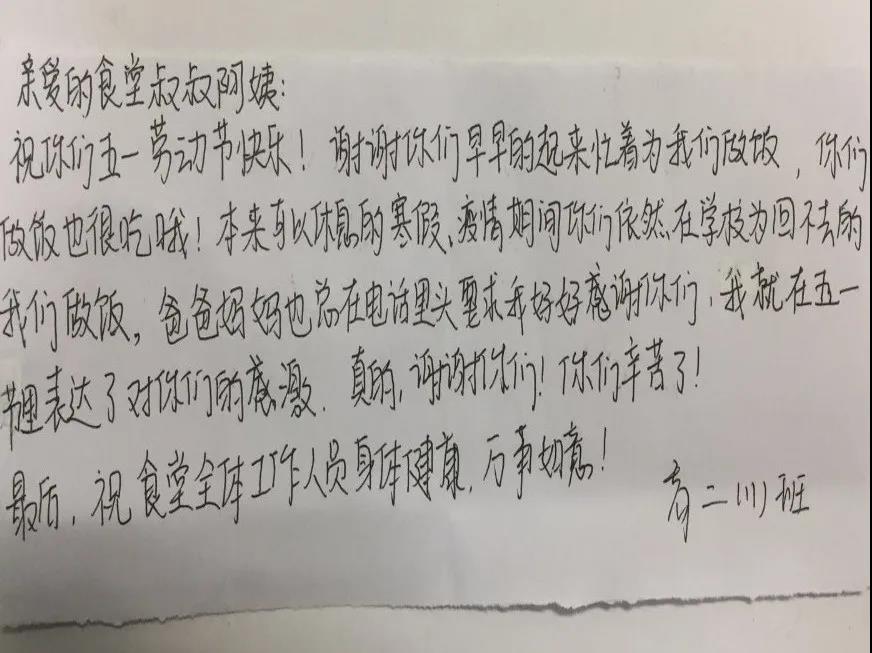 亲爱的食堂叔叔阿姨:
祝你们五一劳动节快乐!谢谢你们早早的起来忙着为我们做饭,你们
做饭也很吃哦!本来可以休息的寒假、疫情期间你们依然在学校为回不去的
我们做饭,爸爸妈妈也总在电话里头要求我好好感谢你们,我就在五一
节里表达了对你们的感激.真的,谢谢你们!你们辛苦了!
最后,祝食堂全体工作人员身体健康,万事如意!
高二(1)班